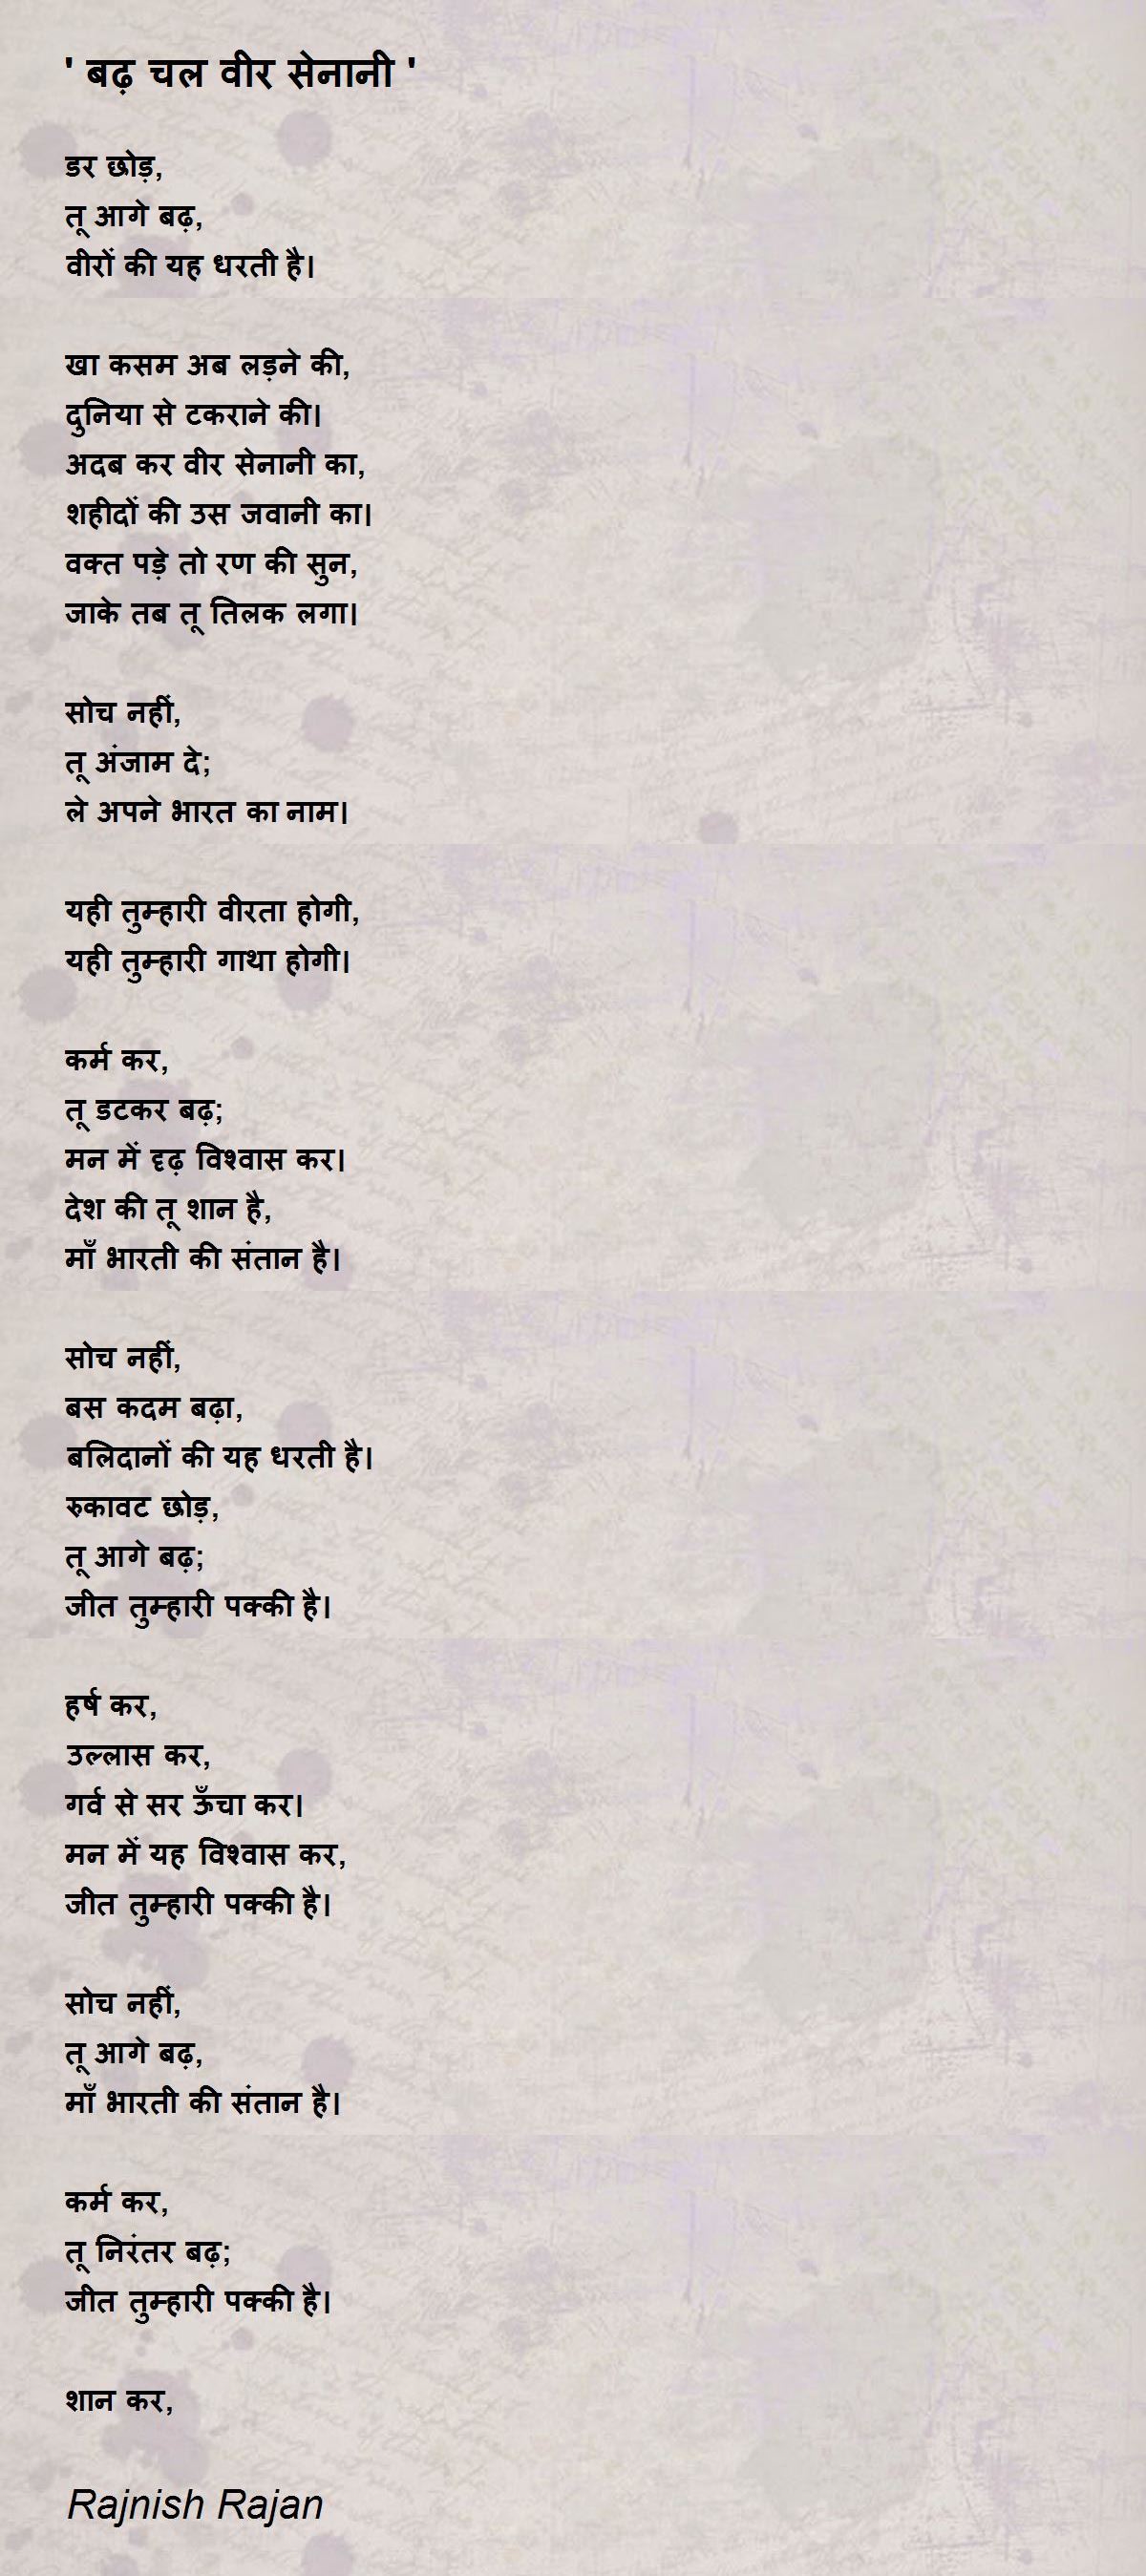 ' बढ़ चल वीर सेनानी '
डर छोड़,
तू आगे बढ़,
वीरों की यह धरती है।
खा कसम अब लड़ने की,
दुनिया से टकराने की।
अदब कर वीर सेनानी का,
शहीदों की उस जवानी का।
वक्त पड़े तो रण की सुन,
जाके तब तू तिलक लगा।
सोच नहीं,
तू अंजाम दे;
ले अपने भारत का नाम।
यही तुम्हारी वीरता होगी,
यही तुम्हारी गाथा होगी।
कर्म कर,
तू डटकर बढ़;
मन में दृढ़ विश्वास कर।
देश की तू शान है,
माँ भारती की संतान है।
सोच नहीं,
बस कदम बढ़ा,
बलिदानों की यह धरती है।
रुकावट छोड़,
तू आगे बढ़;
जीत तुम्हारी पक्की है।
हर्ष कर,
उल्लास कर,
गर्व से सर ऊँचा कर।
मन में यह विश्वास कर,
जीत तुम्हारी पक्की है।
सोच नहीं,
तू आगे बढ़,
माँ भारती की संतान है।
कर्म कर,
तू निरंतर बढ़;
जीत तुम्हारी पक्की है।
शान कर,
Rajnish Rajan